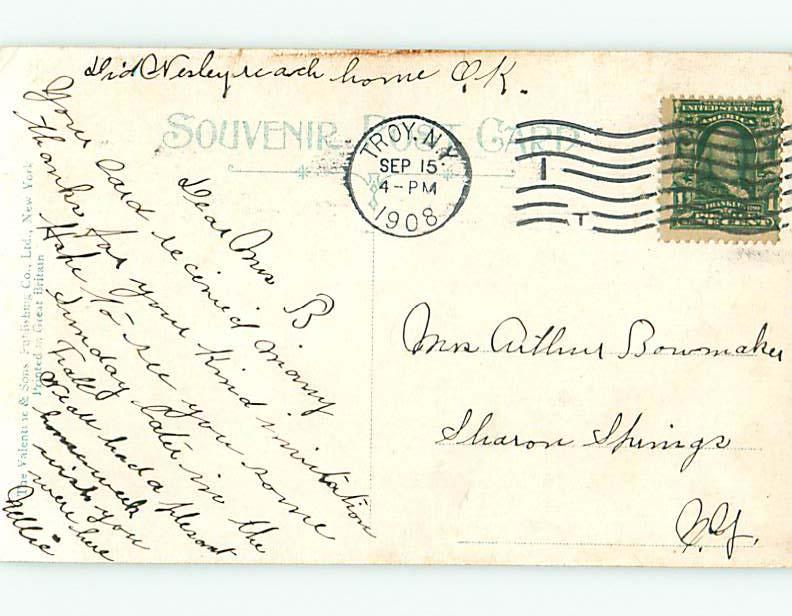 Did Wesley reach home O.K.
SOUVENIR POST CARD
TROY. N.Y.
SEP 15
4-PM
1908
I
T
UNITED STATES
AMERICA
FRANKLIN
1
1
Dear Mrs B
Your card received many
thanks for your kind invitation
Hope to see you some
Sunday later in the
Fall
We all had a plesant
home week
wish you
were here
Nellie
Mrs Arthur Bowmaker
Sharon Springs
N.Y.
The Valentine & Sons Publishing Co., Ltd., New York
Printed in Great Britain